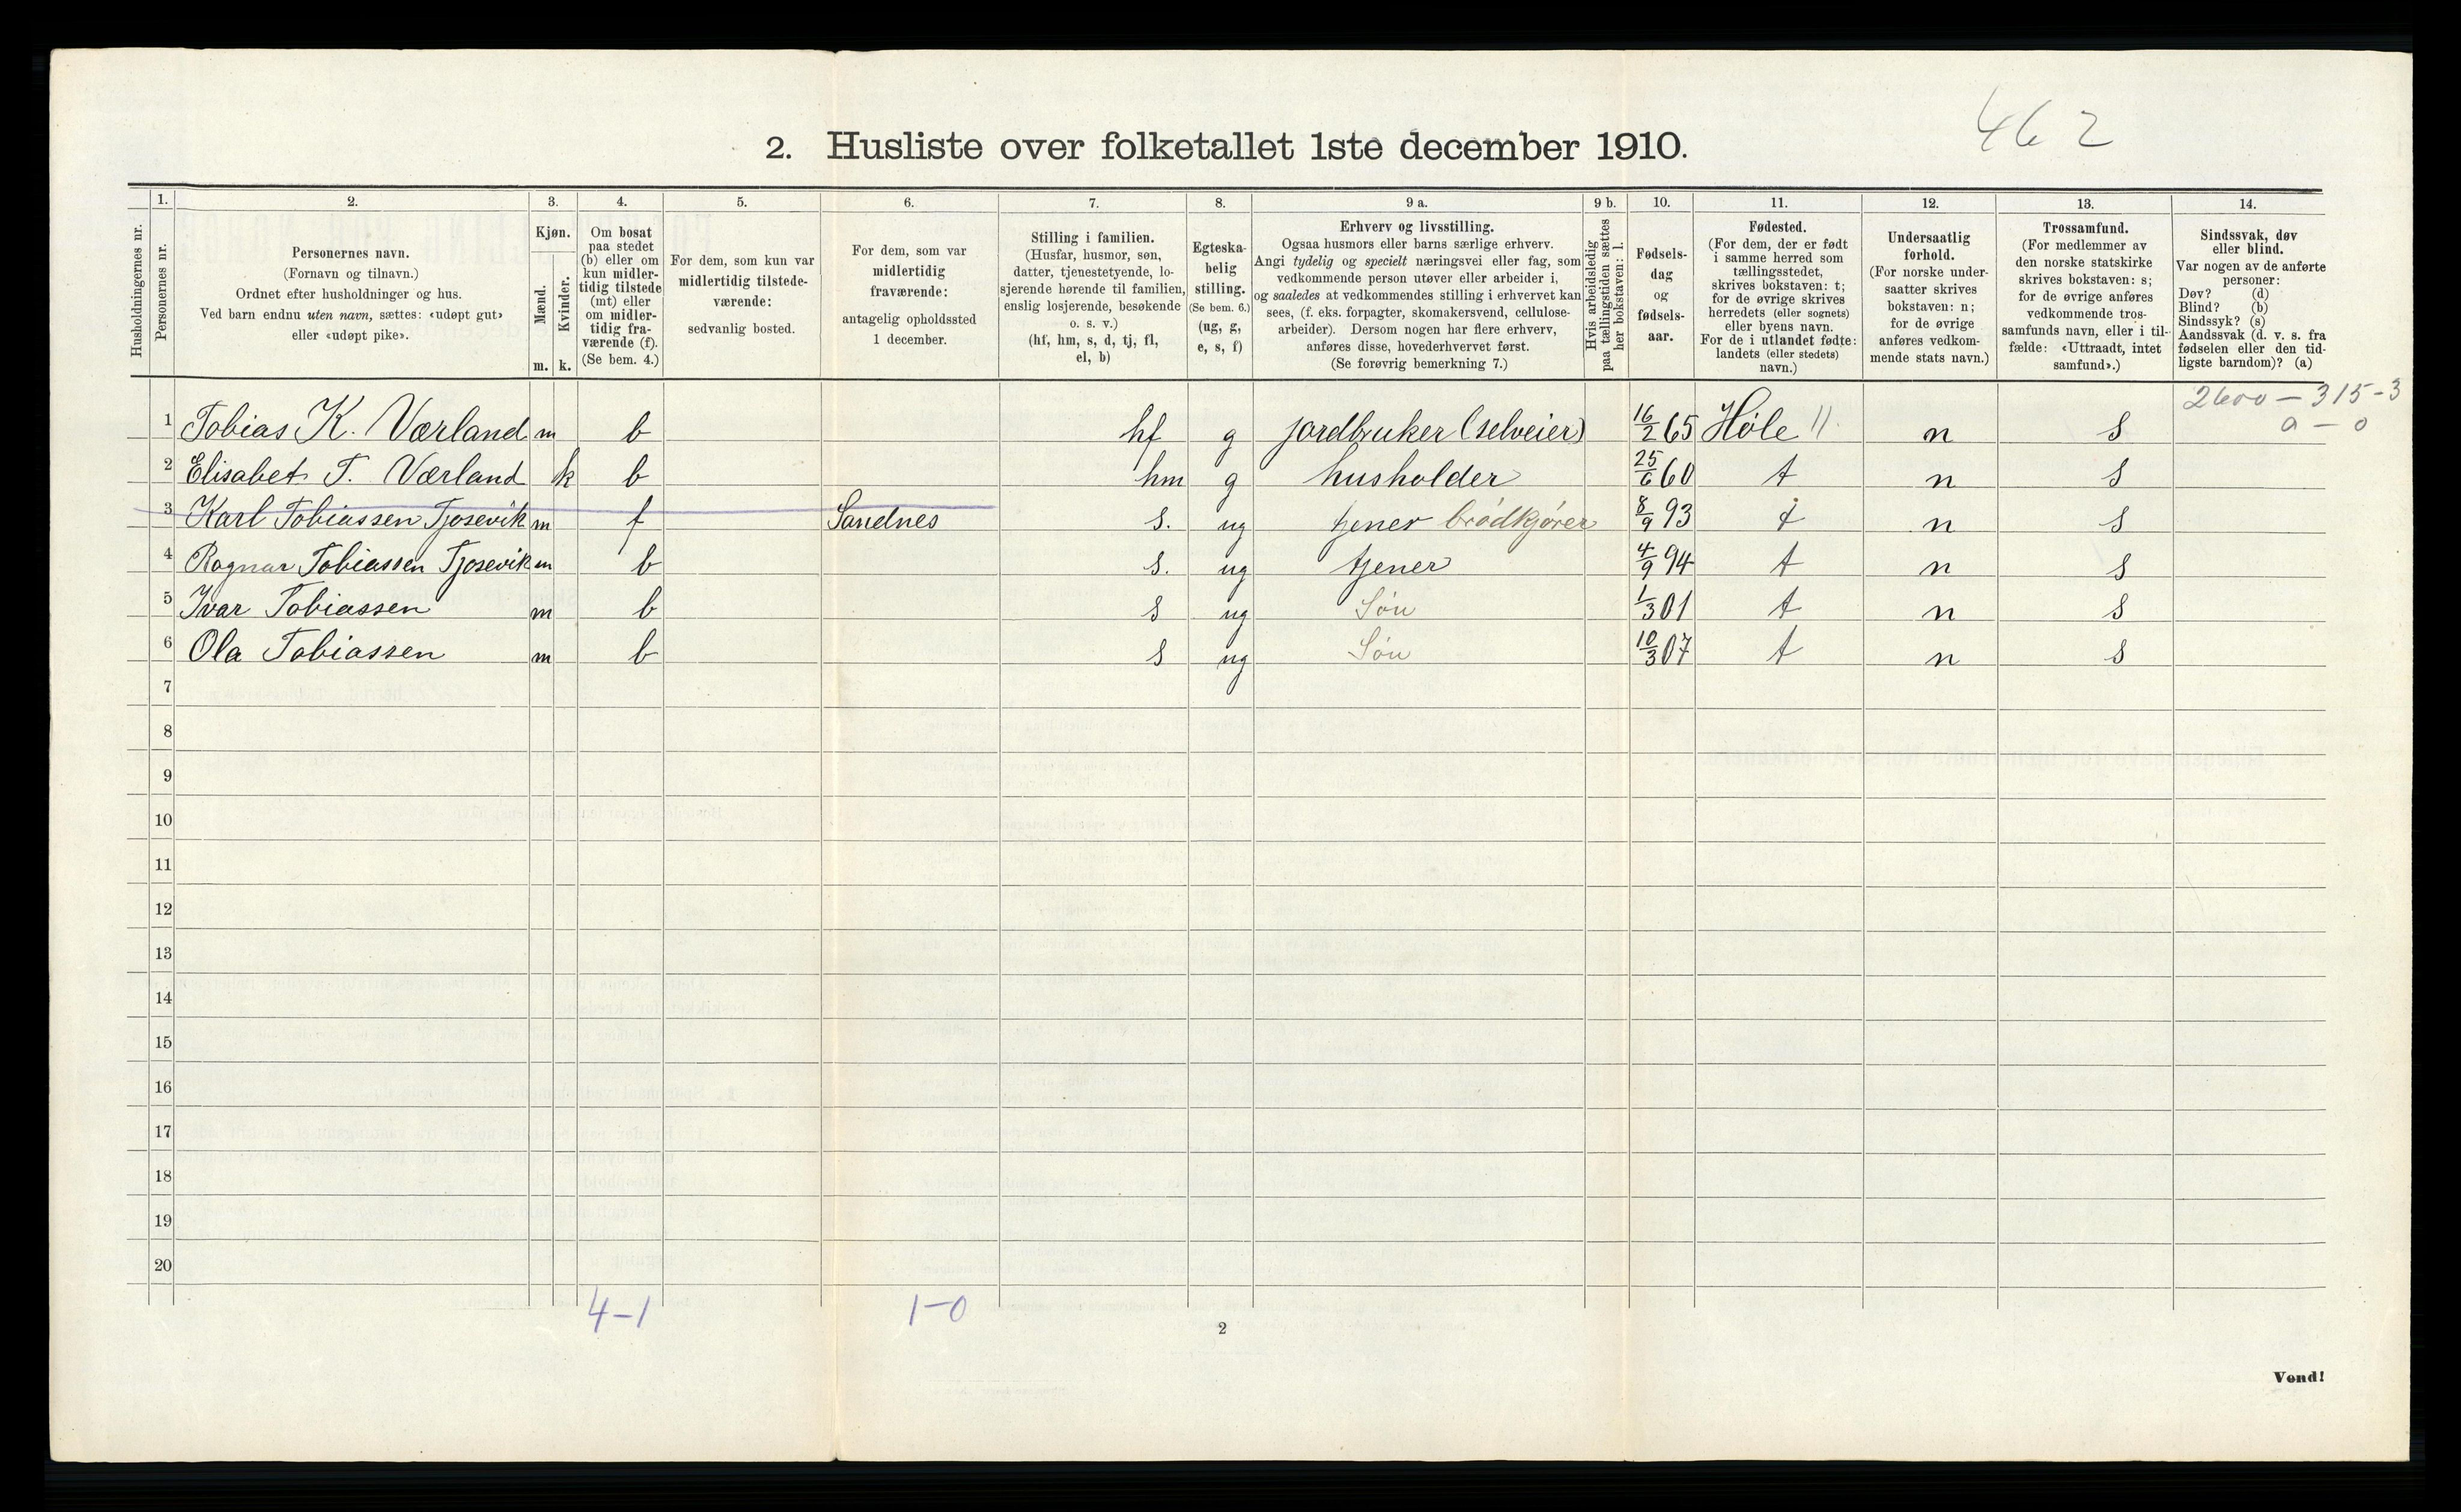 462
2. Husliste over folketallet 1ste december 1910.
1. 2. 3. 4. 5. 6. 7. 8. 9 a. 9 b. 10. 11. 12. 13. 14.
Husholdningernes nr.
Personernes nr.
Personernes navn.
(Fornavn og tilnavn.)
Ordnet efter husholdninger og hus.
Ved barn endnu uten navn, sættes: «udøpt gut»
eller «udøpt pike».
Kjøn.
Mænd.
Kvinder.
m. k.
Om bosat
paa stedet
(b) eller om
kun midler-
tidig tilstede
(mt) eller
om midler-
tidig fra-
værende (f).
(Se bem. 4.)
For dem, som kun var
midlertidig tilstede-
værende:
sedvanlig bosted.
For dem, som var
midlertidig
fraværende:
antagelig opholdssted
1 december.
Stilling i familien.
(Husfar, husmor, søn,
datter, tjenestetyende, lo-
sjerende hørende til familien,
enslig losjerende, besøkende
o. s. v.)
(hf, hm, s, d, tj, fl,
el, b)
Egteska-
belig
stilling.
(Se bem. 6.)
(ug, g,
e, s, f)
Erhverv og livsstilling.
Ogsaa husmors eller barns særlige erhverv.
Angi tydelig og specielt næringsvei eller fag, som
vedkommende person utøver eller arbeider i,
og saaledes at vedkommendes stilling i erhvervet kan
sees, (f. eks. forpagter, skomakersvend, cellulose-
arbeider). Dersom nogen har flere erhverv,
anføres disse, hovederhvervet først.
(Se forøvrig bemerkning 7.)
Hvis arbeidsledig
paa tællingstiden sættes
her bokstaven: l.
Fødsels-
dag
og
fødsels-
aar.
Fødested.
(For dem, der er født
i samme herred som
tællingsstedet,
skrives bokstaven: t;
for de øvrige skrives
herredets (eller sognets)
eller byens navn.
For de i utlandet fødte:
landets (eller stedets)
navn.)
Undersaatlig
forhold.
(For norske under-
saatter skrives
bokstaven: n;
for de øvrige
anføres vedkom-
mende stats navn.)
Trossamfund.
(For medlemmer av
den norske statskirke
skrives bokstaven: s;
for de øvrige anføres
vedkommende tros-
samfunds navn, eller i til-
fælde: «Uttraadt, intet
samfund».)
Sindssvak, døv
eller blind.
Var nogen av de anførte
personer:
Døv? (d)
Blind? (b)
Sindssyk? (s)
Aandssvak (d. v. s. fra
fødselen eller den tid-
ligste barndom)? (a)
2600 – 315-3
0 – 0
1 Tobias K. Værland m b hf g jordbruker (selveier) 16/2 65 Høle 11. n s
2 Elisabet T. Værland k b hm g husholder 25/6 60 t n s
3 Karl Tobiassen Tjosevik m f Sandnes s. ug tjener brødkjører 8/9 93 t n s
4 Ragnar Tobiassen Tjosevik m b s. ug tjener 4/9 94 t n s
5 Ivar Tobiassen m b s ug Søn 1/3 01 t n s
6 Ola Tobiassen m b s ug Søn 10/3 07 t n s
7
8
9
10
11
12
13
14
15
16
17
18
19
20
4-1 1-0
2
Vend!